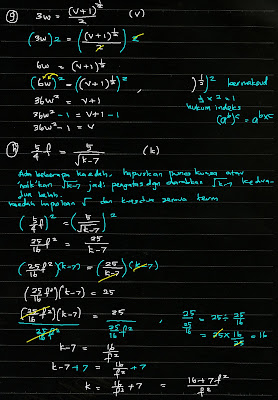 g) 3w = (v+1)^½ / 2 (v)
(3w)2 = ((v+1)^½ / 2) 2
6w = (v+1)^½
(6w)² = ((v+1)^½)²
)^½)² bermaksud
½ × 2 = 1
hukum indeks
(a^b)^c = a^bxc
36w² = v+1
36w² - 1 = v+1 - 1
36w² - 1 = v
h) 5/4 f = 5/√k-7 (k)
Ada beberapa kaedah, hapuskan punca kuasa atau
'naik'kan √k-7 jadi pengatas dgn darabkan √k-7 kedua-
dua belah.
kaedah hapuskan √ dgn kuasadua semua term
(5/4 f)² = (5/√k-7)²
25/16 f² = 25/k-7
(25/16 f²)(k-7) = (25/k-7)(k-7)
(25/16 f²)(k-7) = 25
(25/16 f²)(k-7) / 25/16 f² = 25 / 25/16 f² , 25 / 25/16 = 25 ÷ 25/16
= 25 × 16/25 = 16
k-7 = 16/f²
k-7+7 = 16/f² + 7
k = 16/f² + 7 = 16+7f² / f²